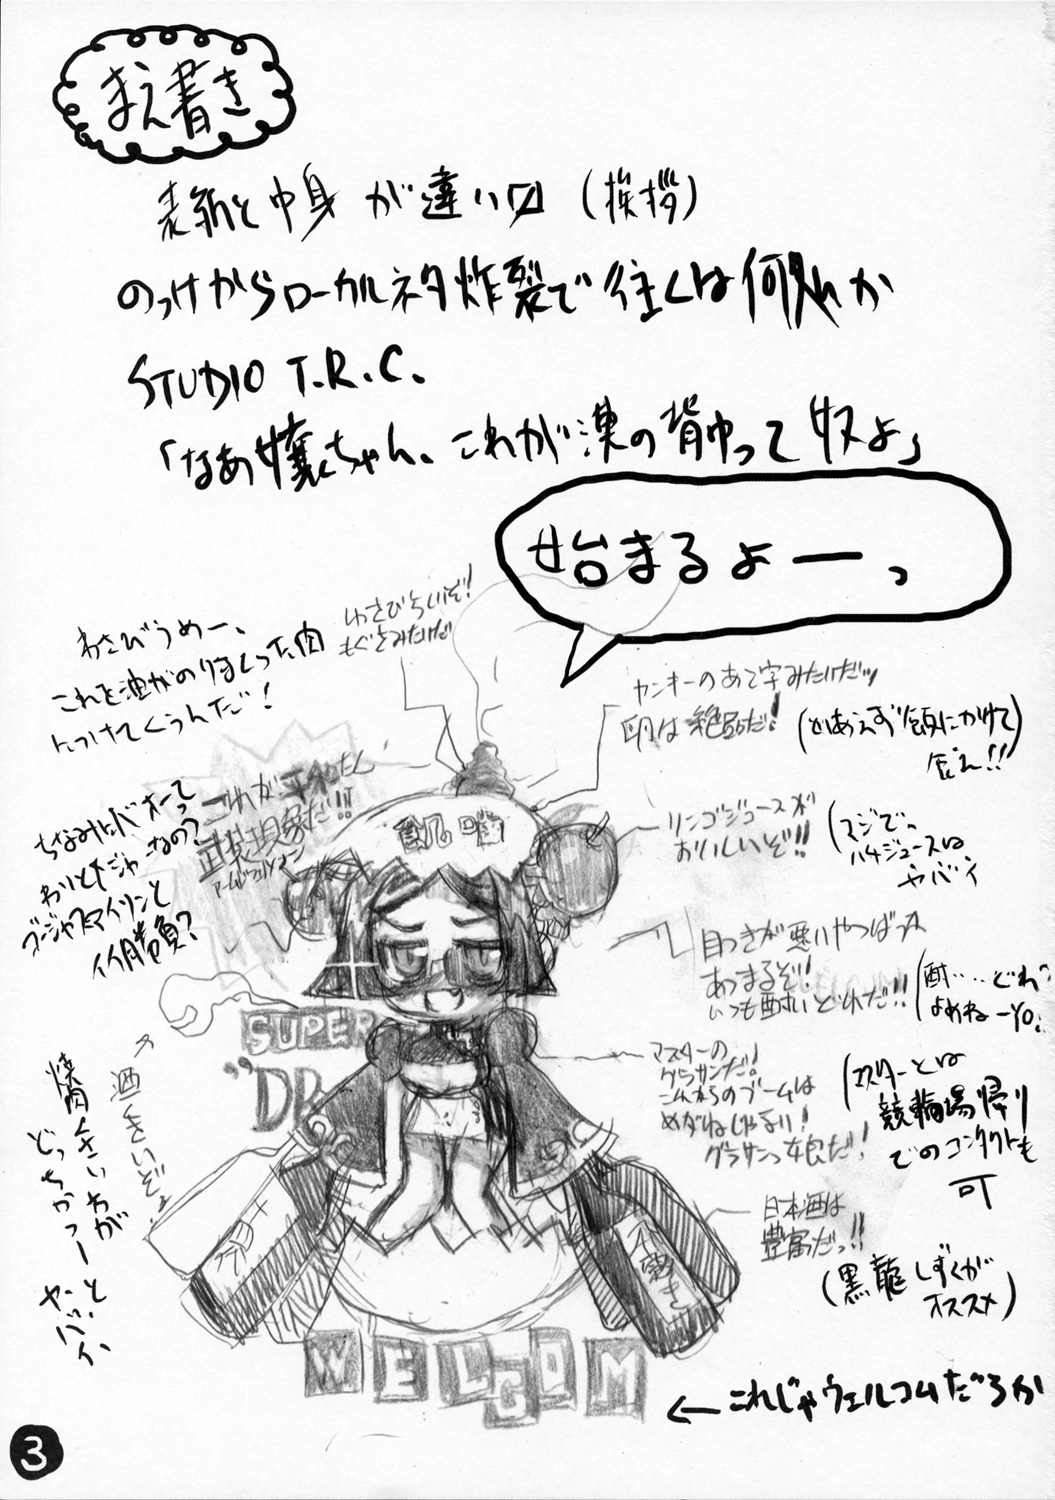 まえ書き
表紙と中身が違い〼(挨拶)
のっけからローカルネタ炸裂で往くは何れか
STUDIO T.R.C.
「なあ嬢ちゃん、これが漢の背中って奴よ」
始まるよーっ
わさびちいぞ!
もぐさみたいだ
わさびうめー、
これを油がのりまくった肉
につけてくうんだ!
ヤンキーのあて字みたいだッ
卵は絶品だ!
(とりあえず飯にかけて
食え!!)
これが平和たん
武装現象だ!!
アームドフェノメノン
ちなみにバオーって
わりとドジャーなの?
イイ勝負?
リンゴジュースが
おいしいぞ!!
(スジで。
ハチジュースは
ヤバイ
目つきが悪いやつばっか
あつまるぞ!
いつも酔いどれだ!!
(酎‥‥どれ?
よめねーYO!
SUPER
マスターの
グラサンだ!
これからのブームは
めがねじゃない!
グラサンっ娘だ!
(マスターとは
競輪場帰り
でのコンタクトも
可
酒くさいぞ。
焼肉くさいわが
どっちかっつーと、
ヤバイ
日本酒は
豊富だっ!!
(黒龍しずくが
オススメ)
WELCOM
←これじゃウェルコムだろか
3